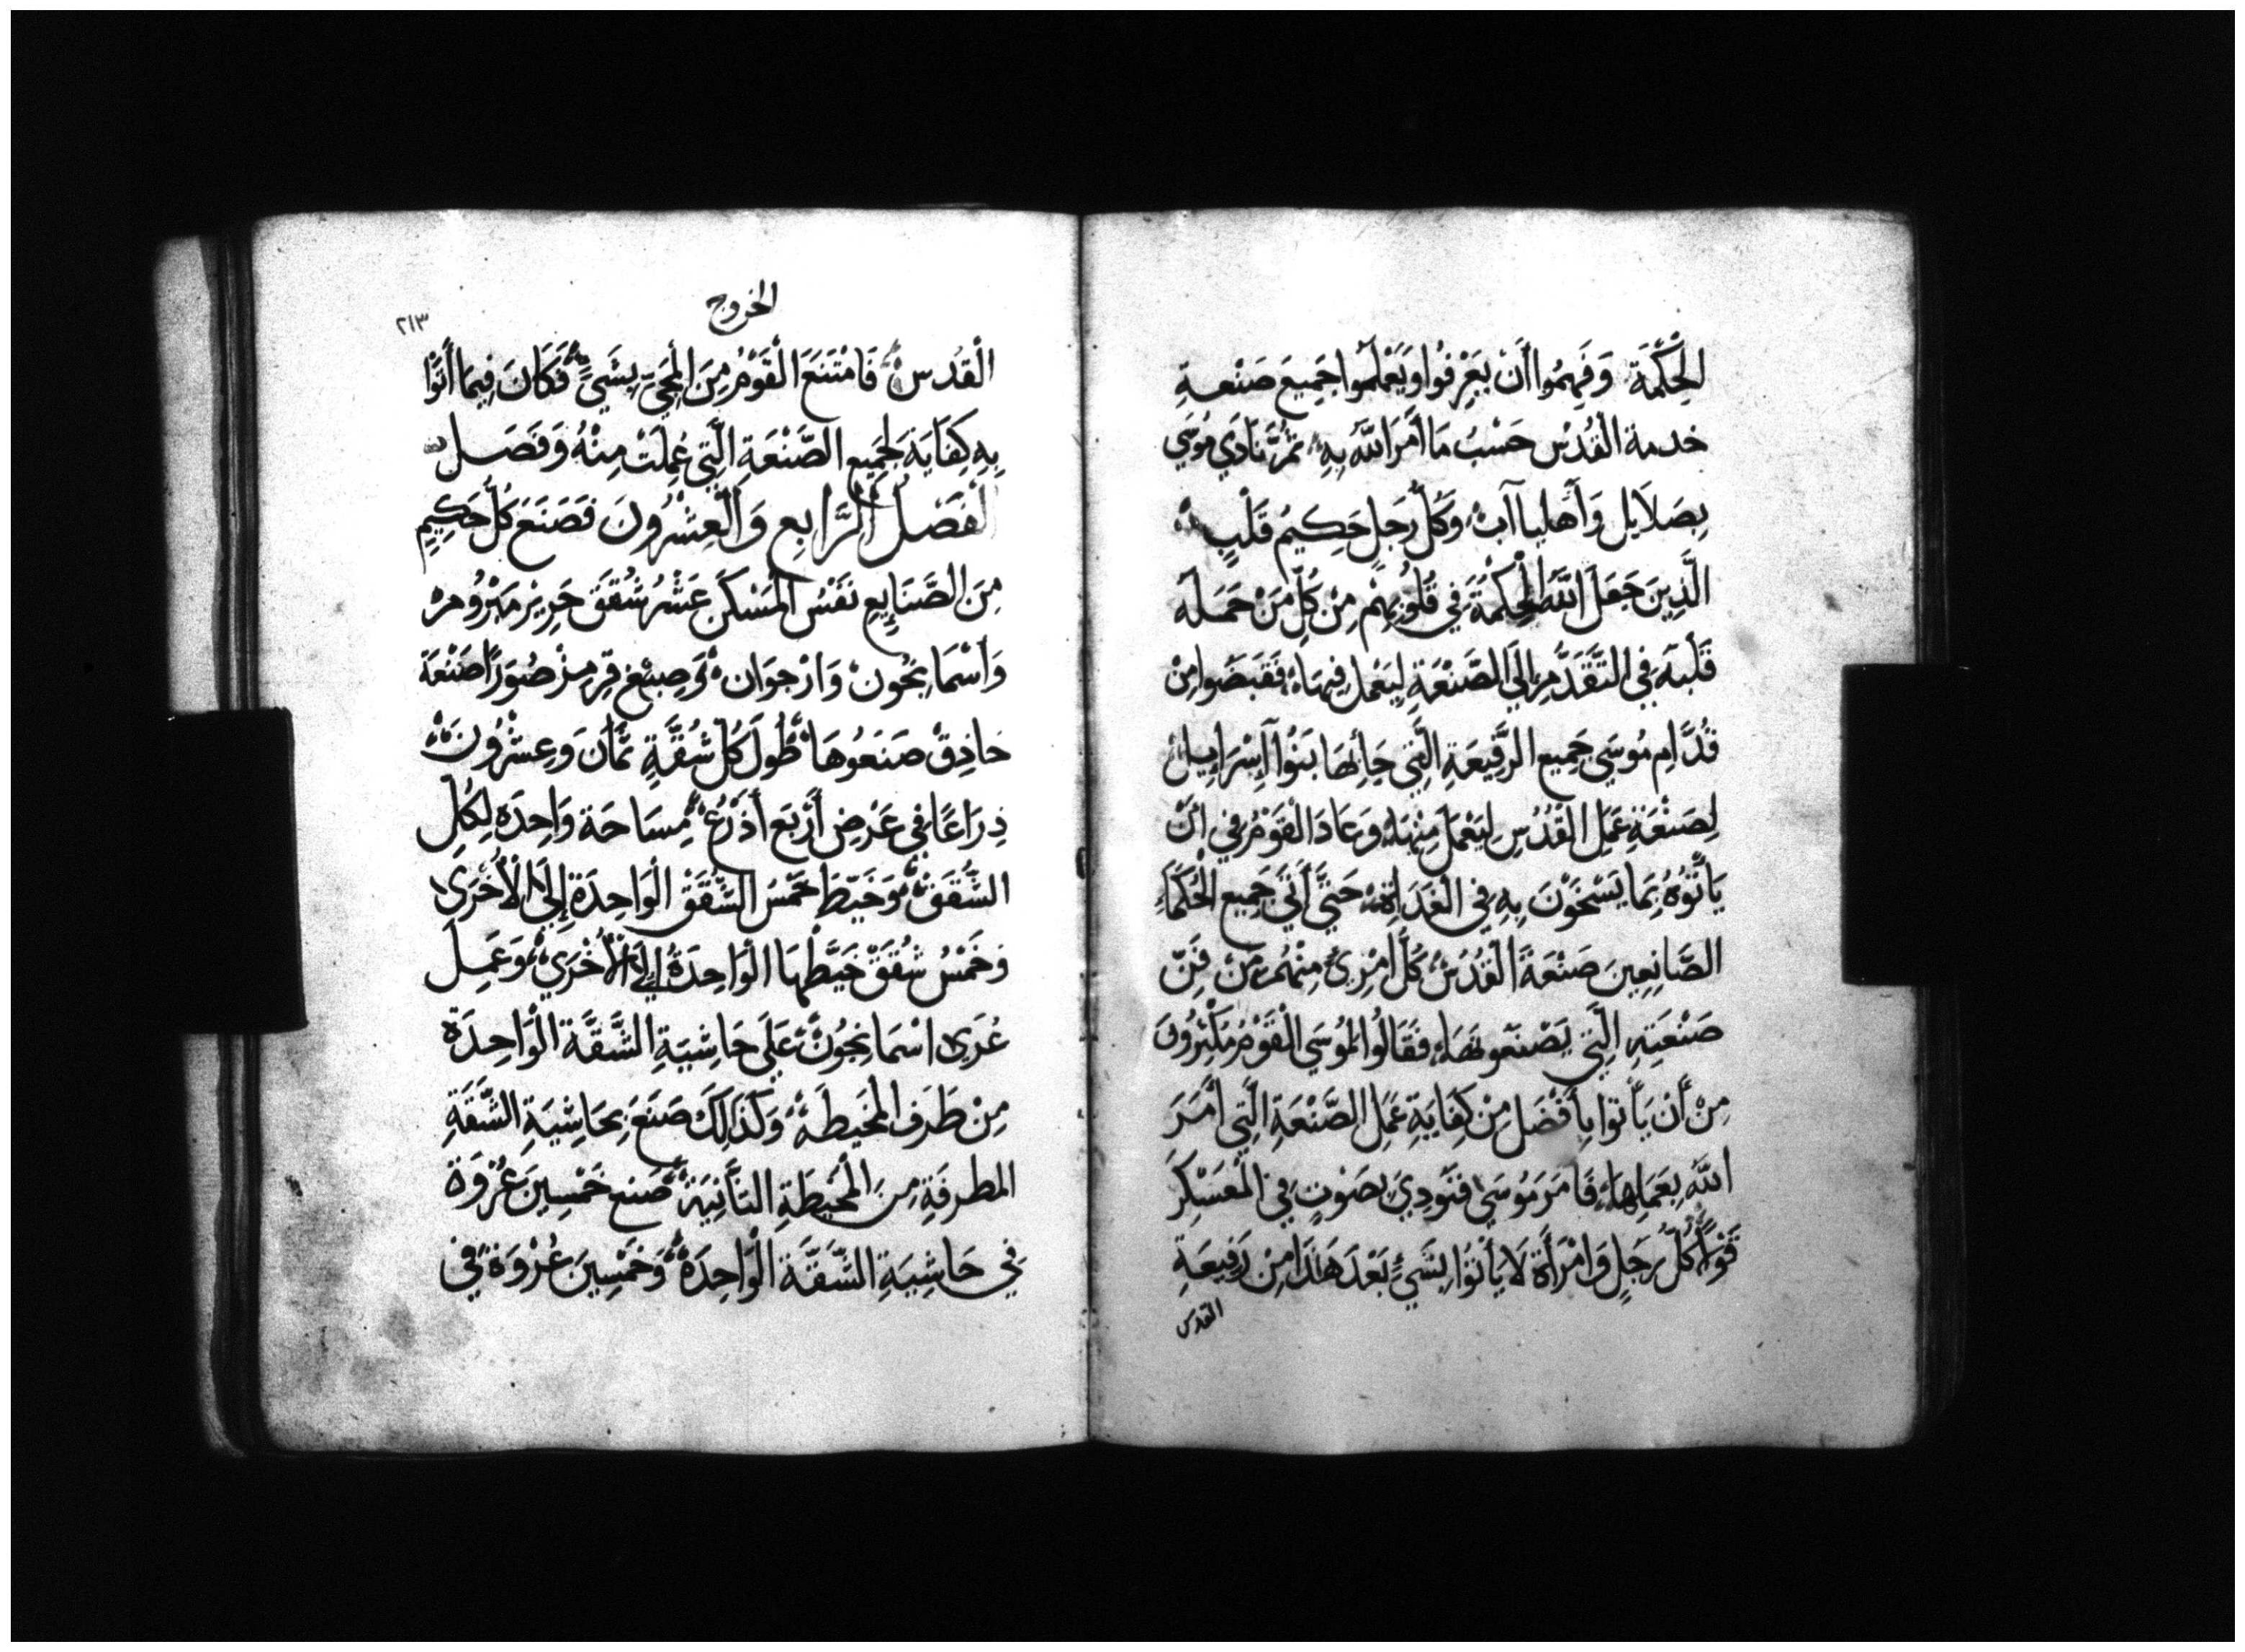 الْحِكْمَةَ وَفَهِمُوا أَنْ يَعْرِفُوا وَيَعْلَمُوا جَمِيعَ صَنْعةِ
خدمة القُدْس حَسْبُ مَا أَمَرَ اللَّه بِهِ ثُمَّ نَادَي مُوسَي
بِصَلَايل وَأَهليا آب وَكُلّ رَجلٍ حَكِيم قَلْبٍ
الَّذِينَ جَعَلَ اللَّهُ الْحِكْمَةَ فِي قُلُوبِهِمْ مِن كُلّ مَنْ حَمَله
قَلْبَه فِي التَّقَدُّمِ إِلَي الصَّنْعَةِ لِيَعْمل فِيهَا فَقَبَضُوا مِنْ
قُدَّامِ مُوسَي جَمِيع الرَّفِيعَةِ الَّتِي جَا بِهَا بَنُوا إِسْرَايِيل
لِصَنْعَةِ عَمَلِ القُدْسِ لِيَعْمَلَ مِنْهَا وَعَادَ القَوْمُ فِي أَنْ
يَأْتُوُهُ بِمَا يَسْخَوْنَ بِهِ فِي الْغَدَاةِ حَتَّي أَتَي جَمِيع الْحُكَمَاءِ
الصَّانِعِينَ صَنْعَةَ الْقُدْسْ كُلّ امْرِئٍ مِنْهُمْ مِنْ فَنّ
صَنْعَتِهِ الَّتِي يَصْنَعُونَهَا فَقَالُوا لِمُوسَي الْقَوْمُ مُكْثِرُونَ
مِنْ أَنْ يَأْتوا بِأَفْضَل مِنْ كِفَايَةِ عَمَل الصَّنْعَةِ الَّتِي أَمَرَ
اللَّه بِعَمَلِهَا فَامَرَ مُوسَي فَنُودِيَ بِصَوْتٍ فِي الْمعَسْكِرَ
قُوْلًا كُلّ رَجلٍ وَامْرَأَة لَا يَأْتُوا بِشَيْءٍ بَعْدَ هَذَا مِنْ رَفِيعَةِ
القدس
الخروج
٢١٣
الْقدْس فَامْتَنَعَ الْقَوْمُ مِنَ الْمَجِيّ بِشَيْ فَكَانَ فِيمَا أَتَوْا
بِهِ كِفَايَة لِجَمِيع الصَّنْعَةِ الَّتِي عُمِلَتْ مِنْهُ وَفَضَل
الفَصْل الرَّابِع وَالْعِشْرُونَ فَصَنَعَ كُلّ حَكِيمٍ
مِنَ الصَّنَايِع نَفْسُ الْمَسْكَن عَشْرُ شُقَقَ حَرِير مَبْرُوم
وَأَسْمَانْجُونْ وَارْجوَان وَصِبْغ قِرمِزْ صُوَرًا صَنْعَة
حَاذِقْ صَنَعُوهَا طُولَ كُلّ شُقَّةٍ ثَمَان وَعِشْرُونَ
ذِرَاعًا فِي عَرْضِ أَرْبَع أَذْرُعْ مِسَاحَة وَاحِدَه لِكُلّ
الشُّقَقْ وَخَيّطَ خَمْسُ الشُّقَقْ الْوَاحِدَة إِلَي الْأُخْرَي
وَخَمْسُ شُقَقْ خَيَّطْهَا الْوَاحِدَةُ إِلَي الْأُخْرَي وَعَمِل
عُرَي اسْمَانْجُونْ عَلَي حَاشِيَةِ الشُّقَّة الْوَاحِدَة
مِنْ طَرَفِ الْمخَيطَه وَكَذَالِكَ صَنَعَ بِحَاشِيَةِ الشّقَةِ
المطرفَةِ مِنَ الْمخَيطَةِ الثَّانِيَة صَنَع خَمْسِينَ عُرْوَة
فِي حَاشِيَةِ الشّقَّة الْوَاحِدَة وَخَمْسِينَ عُرْوَة فِي